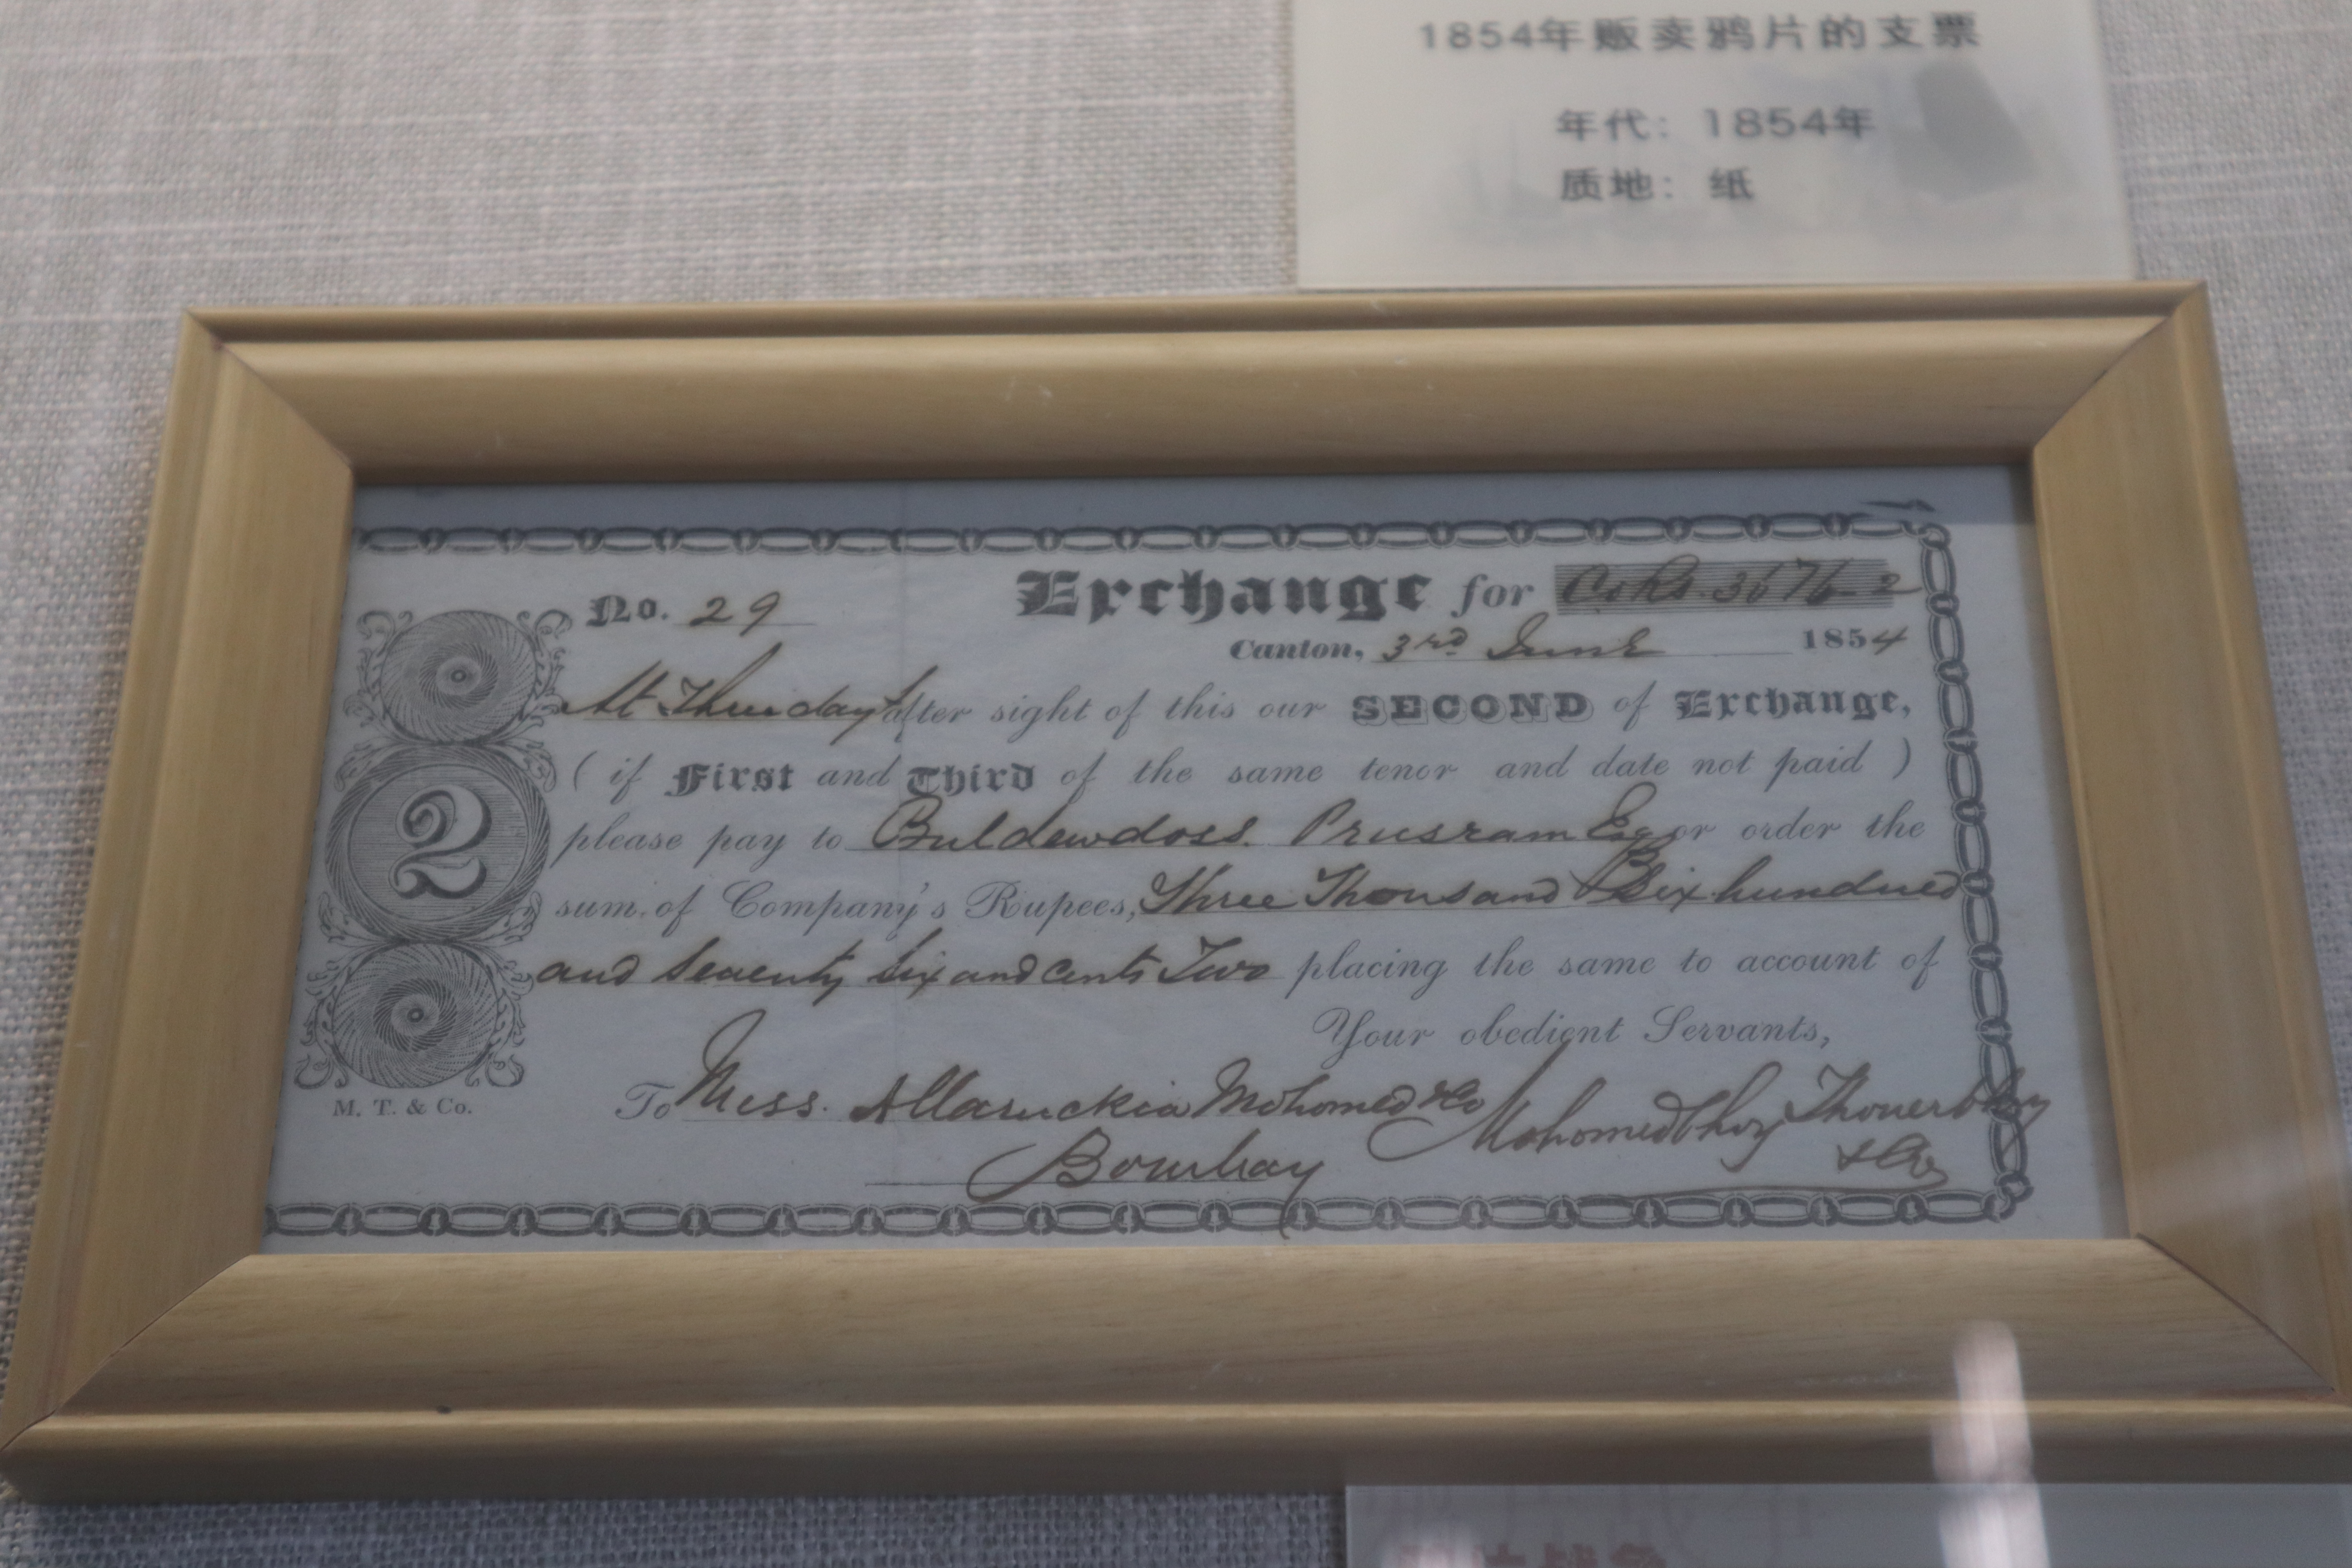 1854年贩卖鸦片的支票
年代: 1854年
质地: 纸
No. 29
Exchange for Co Rs. 3676-2
Canton, 3rd June 1854
At Three days after sight of this our SECOND of Exchange,
( if First and Third of the same tenor and date not paid )
please pay to Buldewdoss Prusram Esqr or order the
sum of Company's Rupees, Three Thousand Six hundred
and Seventy Six and Cents Two placing the same to account of
Your obedient Servants,
2
M. T. & Co.
To Mess. Allaruckia Mohomed & Co
Bombay
Mohomedbhoy Thoverbhoy
& Co